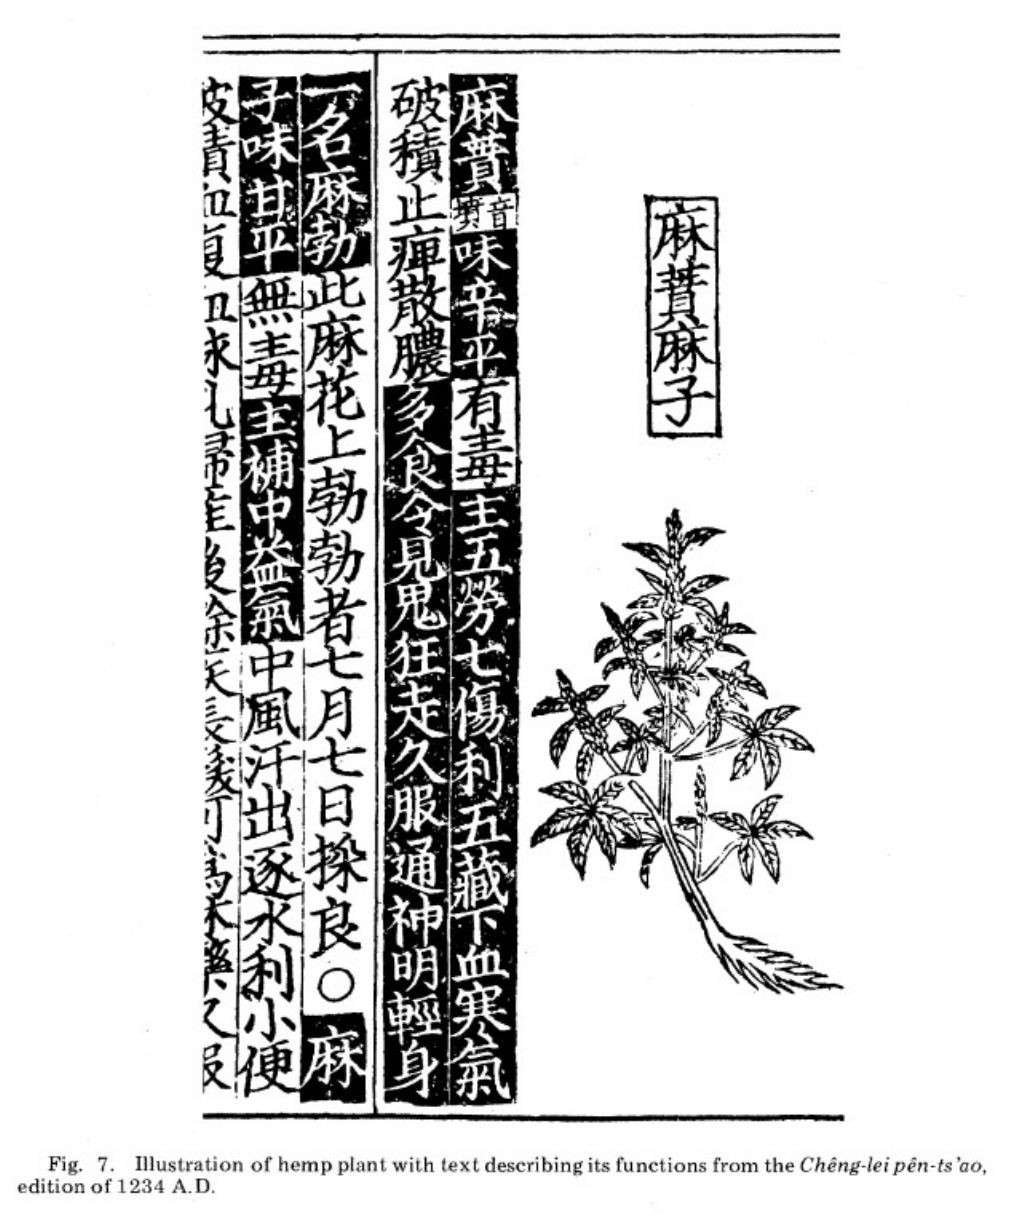 麻蕡麻子
麻蕡音墳味辛平有毒主五勞七傷利五藏下血寒氣
破積止痺散膿多食令見鬼狂走久服通神明輕身
一名麻勃此麻花上勃勃者七月七日採良○麻
子味甘平無毒主補中益氣中風汗出逐水利小便
破積血復血脉乳婦產後餘疾長髮可為沐藥久服
Fig. 7. Illustration of hemp plant with text describing its functions from the Chêng-lei pên-ts'ao,
edition of 1234 A.D.